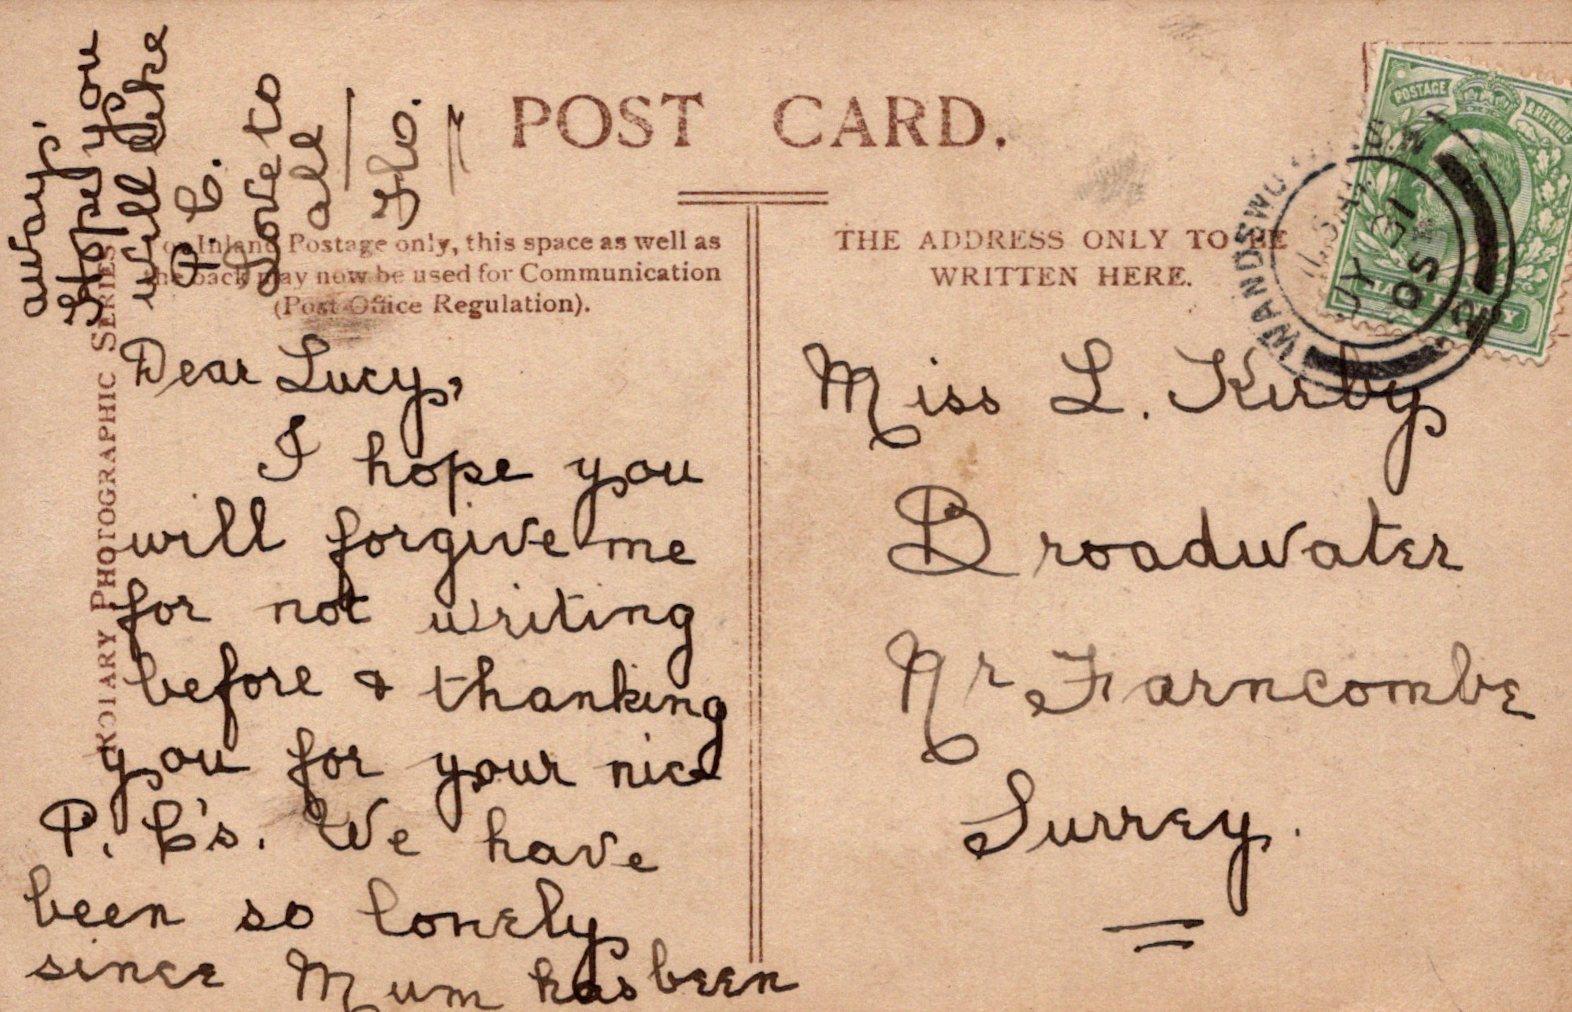 POST CARD.
For Inland Postage only, this space as well as
the back may now be used for Communication
(Post Office Regulation).
THE ADDRESS ONLY TO BE
WRITTEN HERE.
ROTARY PHOTOGRAPHIC SERIES
Dear Lucy,
I hope you
will forgive me
for not writing
before & thanking
you for your nice
P. C's. We have
been so lonely
since Mum has been
away.
Hope you
will like
P. C.
Love to
all
Flo.
Miss L. Kirby
Broadwater
Nr Farncombe
Surrey.
POSTAGE & REVENUE
WANDSWORTH
S.W
JY 31
05